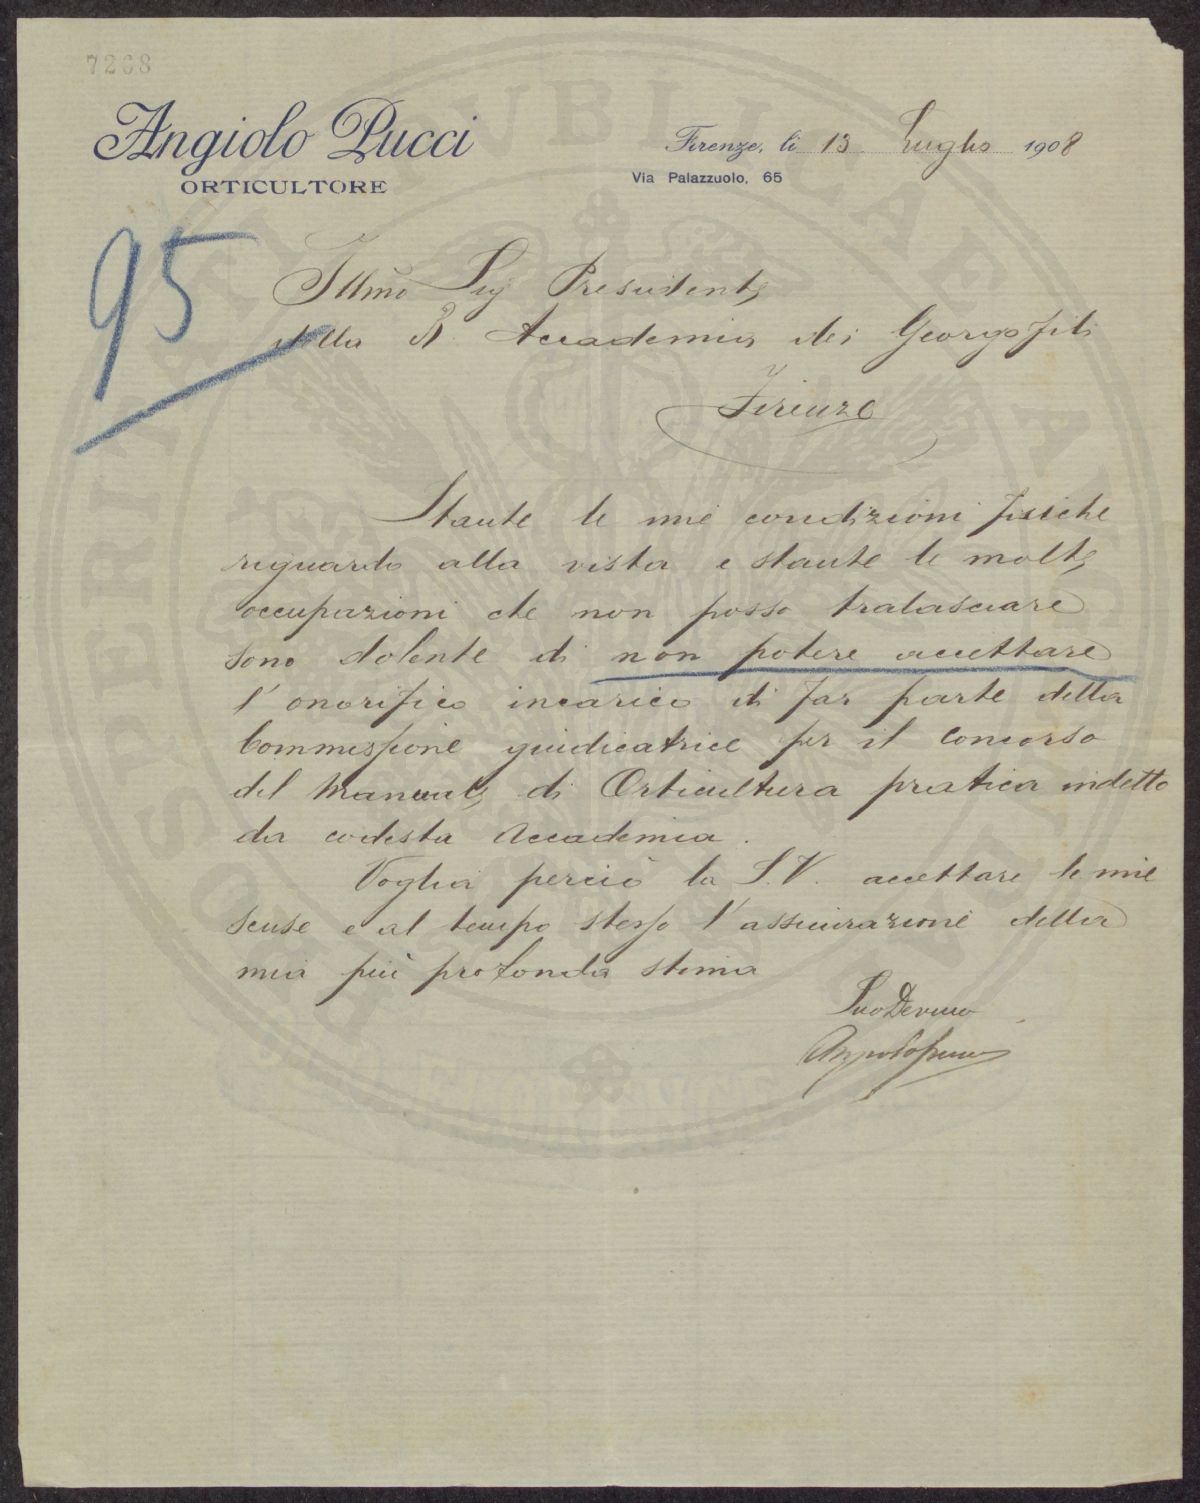 7268
Angiolo Pucci
ORTICULTORE
Firenze, li 13 Luglio 1908
Via Palazzuolo, 65
95
Illmo Sig Presidente
della R. Accademia dei Georgofili
Firenze
Stante le mie condizioni fisiche
riguardo alla vista e stante le molte
occupazioni che non posso tralasciare
sono dolente di non potere accettare
l'onorifico incarico di far parte della
Commissione giudicatrice per il concorso
del Manuale di Orticultura pratica indetto
da codesta Accademia.
Voglia perciò la S.V. accettare le mie
scuse e al tempo stesso l'assicurazione della
mia più profonda stima
Suo Devmo
Angiolo Pucci